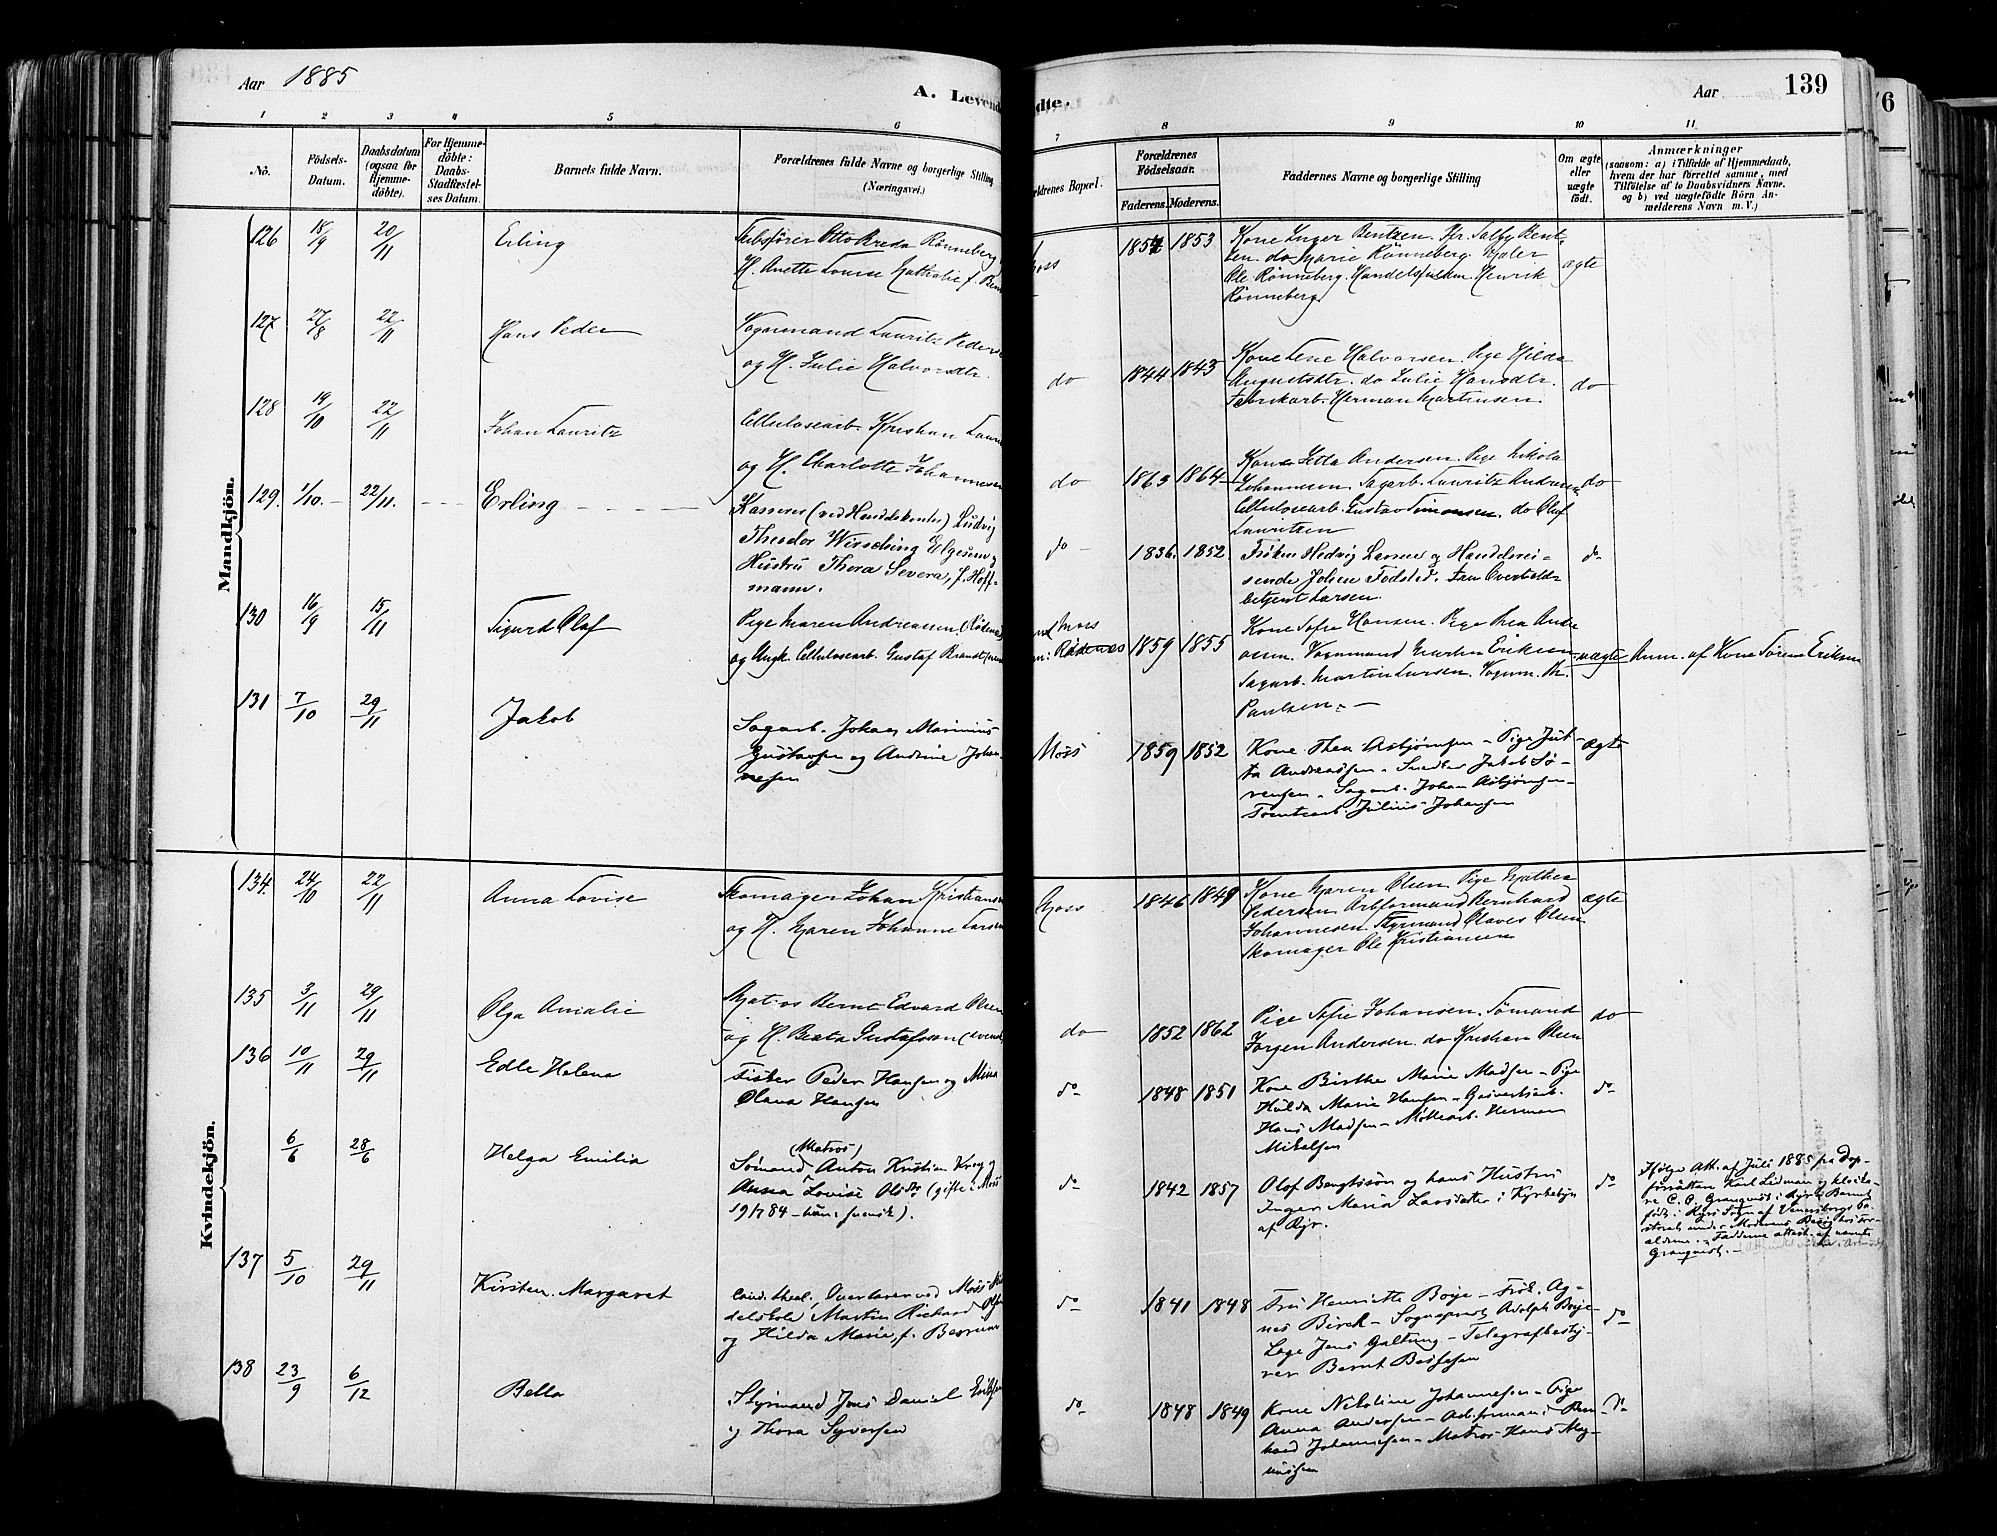 Aar 1885
A. Levende
dte.
Aar
139
1 2 3 4 5 6 7 8 9 10 11
No.
Födsels-
Datum.
Daabsdatum
(ogsaa for
Hjemme-
döbte).
For Hjemme-
döbte:
Daabs-
Stadfæstel-
ses Datum.
Barnets fulde Navn.
Forældrenes fulde Navne og borgerlige Stilling
(Næringsvei.)
ældrenes Bopæl.
Forældrenes
Födselsaar.
Faderens. Moderens.
Faddernes Navne og borgerlige Stilling
Om ægte
eller
uægte
födt.
Anmærkninger
(saasom: a) i Tilfælde af Hjemmedaab,
hvem der har forrettet samme, med
Tilföielse af to Daabsvidners Navne.
og b) ved uægtefödte Börn An-
melderens Navn m. V.)
Mandkjön.
126 18/9 20/11 Erling
Skibsfører Otto Breda Rönneberg
H. Anette Louise Nathalie f.
Moss 1857 1853
Kone Inger Bentzen. Fr. Salby Bent-
zen. do Marie Rönneberg. Mægler
Ole Rönneberg. Handelsfuldm. Henrik
Rönneberg
ægte
127 27/8 22/11 Hans Peder
Vognmand Lauritz Peders
og H. Julie Halvorsdtr.
do 1844 1843
Kone Lene Halvorsen. Pige Hilda
Augustsdtr. do Julie Hansdtr.
Fabrikarb. Herman Martinsen.
do
128 14/10 22/11 Johan Lauritz
Cellulosearb. Kristian Laur
og H. Charlotte Johannesen
do 1863 1864
Kone Jetta Andersen. Pige Nikola
Johannesen. Sagarb. Lauritz Andresen
Cellulosearb. Gustav Simonsen. do Olaf
Lauritzen
do
129. 1/10. 22/11. Erling
Kasserer (ved Handelskontor) Ludvig
Theodor Wirsching Elgesem og
Hustru Thora Severa, f. Hoff-
mann.
do 1836. 1852
Frøken Hedvig Larsen og Handelsrei-
sende Johan Fodsted. Fru Overtold-
betjent Larsen.
do
130 16/9 15/11 Sigurd Olaf
Pige Maren Andreassen (Rødenæs)
og Ungk. Cellulosearb. Gustaf Brandt
Moss
Rødenæs 1859 1855
Kone Sofie Hansen. Pige Thea Andre
asen. Vognmand Martin Eriksen
Sagarb. Martin Larsen. Vognm. Kr.
Paulsen.
uægte
Anm. af Kone Sørene Eriksen
131 7/10 29/11 Jakob
Sagarb. Johan Marinius
Gustavsen og Andrine Johan-
nesen
Moss 1859 1852
Kone Thea Asbjørnsen - Pige Jut-
ta Andreassen - Snedker Jakob Sø-
rensen - Sagarb. Johan Asbjørnsen -
Tomtearb. Julius Johansen
ægte
Kvindekjön.
134. 24/10 22/11 Anna Lovise
Skomager Johan Kristiansen
og H. Maren Johanne Larsen
Moss 1846 1849
Kone Maren Olsen Pige Mathea
Pedersen Arbformand Bernhard
Johannesen Styrmand Olaves Olsen
Skomager Ole Kristiansen
ægte
135 3/11 29/11 Olga Amalie
Matros Bernt Edvard Olsen
og H. Beata Gustafsson (svensk)
do 1852 1862
Pige Sofie Johansen. Sømand
Jørgen Andersen. do Kristian Olsen
do
136 10/11 29/11 Edle Helena
Fisker Peder Hansen og Mina
Olava Hansen
do 1848 1851
Kone Birthe Marie Madsen - Pige
Hulda Marie Hansen - Gasverksarb.
Hans Madsen - Møllearb. Herman
Mikelsen
do
6/6 28/6 Helga Emilia
(Matros)
Sømand Anton Kristian Krog og
Anna Lovise Olsdr (gifte i Moss
19/1 84 - han: svensk).
do 1842 1857
Olof Bengtsson og hans Hustru
Inger Maria Larsdotter i Kyrkebyn
af Ryr.
do
Ifølge Att. af Juli 1885 fra Dop-
förrättare Karl Lidman og kloka-
re C. O. Granqvist i Ryrs. Barnet
født i Ryrs Sogn af Venersborgs Pa-
storat under Moderens Besøg hos For-
ældrene. - Fadderne attest. af nævnte
Granqvist. -
137 5/10 29/11 Kirsten Margaret
Cand. theol. Overlærer ved Moss Mid-
delskole Martin Richard Olsen
og Hilda Marie, f.
do 1841 1848
Fru Henriette Boije - Frøk. Ag-
nes Birch - Sogneprest Adolph Boije -
Læge Jens Galtung - Telegrafbesty-
rer Bernt Bessesen
do
138 23/9 6/12 Bella
Styrmand Jens Daniel Eriksen
og Thora Syversen
do 1848 1849
Kone Nikoline Johannesen - Pige
Anna Andersen - Arbformand Bern-
hard Johannesen - Matros Hans Mag-
nusen
do